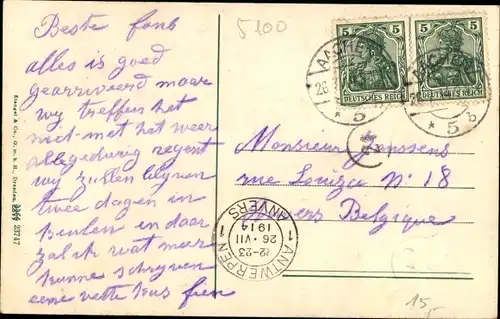 Beste fons
alles is goed
gearriveerd maar
wy treffen het
niet met het weer
regent
wy zullen blyven
twee dagen in
Keulen en daar
zal ik wat meer
kunne schryven
eene vette kus fien
5100
5 5
DEUTSCHES REICH DEUTSCHES REICH
AACHEN
26
* 5 * 5 b
Monsieur Janssens
rue Louiza N° 18
Anvers Belgique
1 ANTWERPEN 1
ANVERS
22-23
26 · VII
1914
15,-
Stengel & Co., G. m. b. H., Dresden